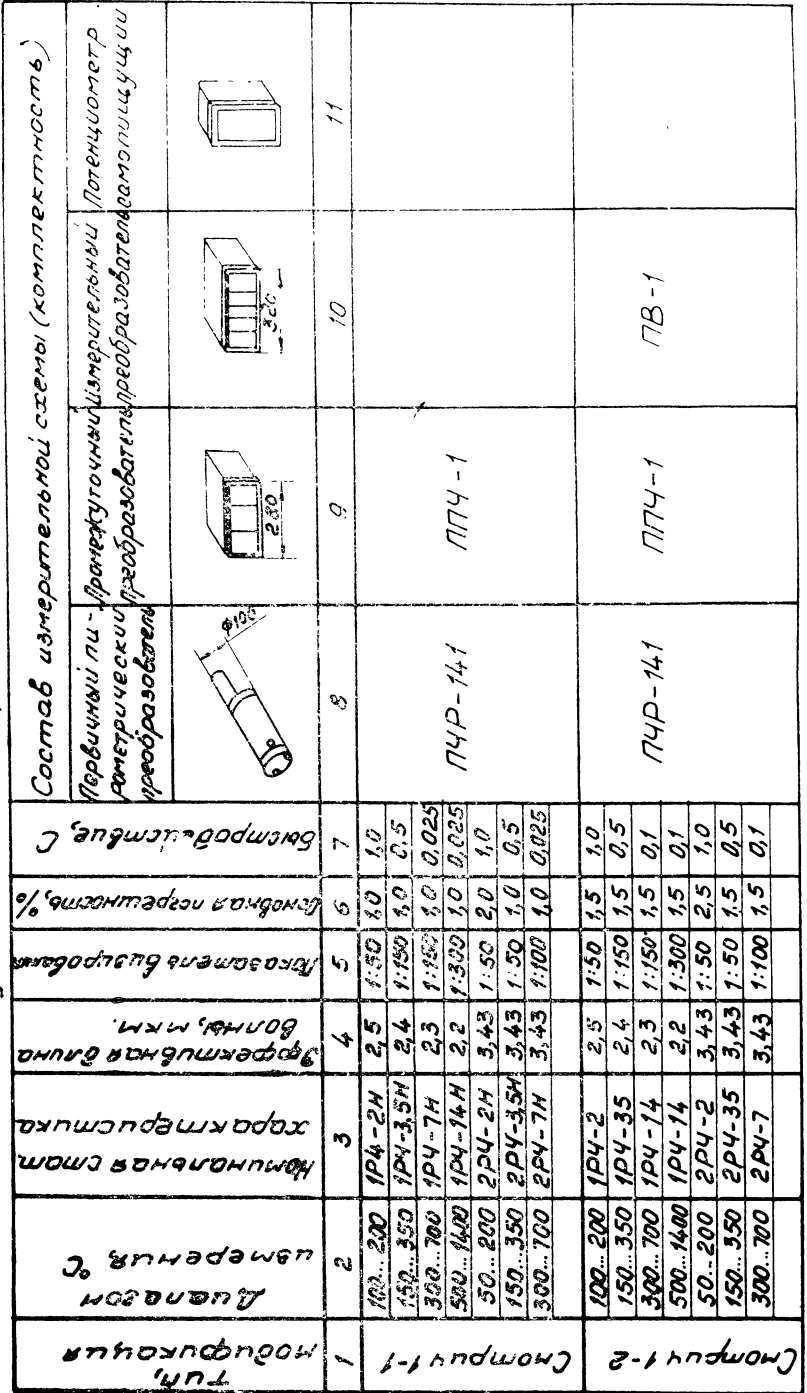 Тип, модификация
Диапазон измерения, °С
Номинальная стат. характеристика
Эффективная длина волны, мкм.
Показатель визирования
Основная погрешность, %
Быстродействие, С
Состав измерительной схемы (комплектность)
Первичный пи-
рометрический
преобразователь
Промежуточный
преобразователь
Измерительный
преобразователь
Потенциометр
самопишущий
ф100
280
320
1 2 3 4 5 6 7 8 9 10 11
Смотрич 1-1
100...200 1РЧ-2Н 2,5 1:50 1,0 1,0
150...350 1РЧ-3,5Н 2,4 1:150 1,0 0,5
300...700 1РЧ-7Н 2,3 1:150 1,0 0,025
500...1400 1РЧ-14Н 2,2 1:300 1,0 0,025
50...200 2РЧ-2Н 3,43 1:50 2,0 1,0
150...350 2РЧ-3,5Н 3,43 1:50 1,0 0,5
300...700 2РЧ-7Н 3,43 1:100 1,0 0,025
ПЧР-141 ППЧ-1
Смотрич 1-2
100...200 1РЧ-2 2,5 1:50 1,5 1,0
150...350 1РЧ-35 2,4 1:150 1,5 0,5
300...700 1РЧ-14 2,3 1:150 1,5 0,1
500...1400 1РЧ-14 2,2 1:300 1,5 0,1
50...200 2РЧ-2 3,43 1:50 2,5 1,0
150...350 2РЧ-35 3,43 1:50 1,5 0,5
300...700 2РЧ-7 3,43 1:100 1,5 0,1
ПЧР-141 ППЧ-1 ПВ-1